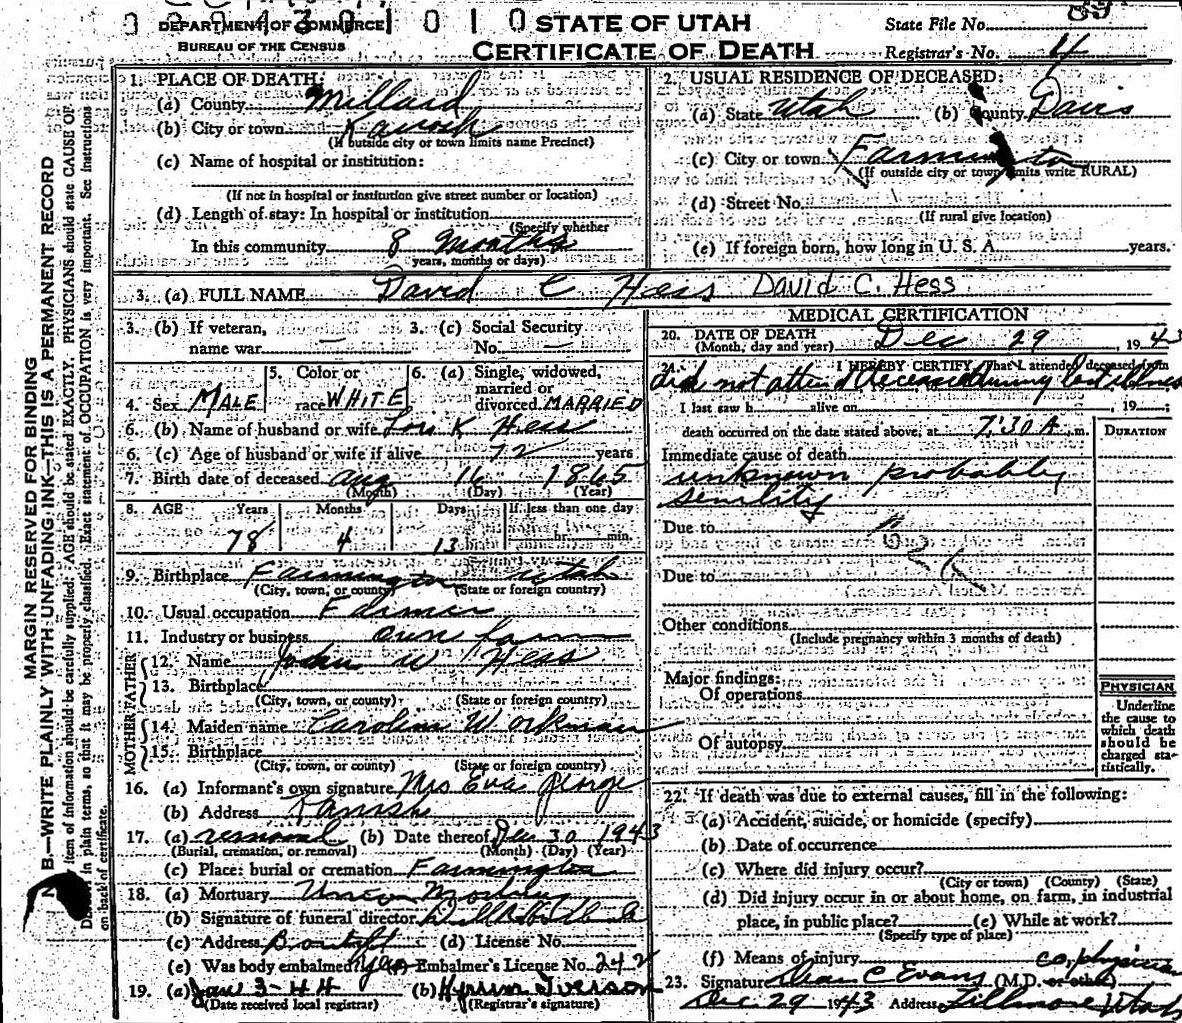 DEPARTMENT OF COMMERCE
BUREAU OF THE CENSUS
STATE OF UTAH
CERTIFICATE OF DEATH
State File No. 89
Registrar's No. 4
MARGIN RESERVED FOR BINDING
N. B.—WRITE PLAINLY WITH UNFADING INK—THIS IS A PERMANENT RECORD
item of information should be carefully supplied. AGE should be stated EXACTLY. PHYSICIANS should state CAUSE OF
in plain terms, so that it may be properly classified. Exact statement of OCCUPATION is very important. See instructions
on back of certificate.
1. PLACE OF DEATH:
(a) County Millard
(b) City or town Kanosh
(If outside city or town limits name Precinct)
(c) Name of hospital or institution:
(If not in hospital or institution give street number or location)
(d) Length of stay: In hospital or institution
(Specify whether
In this community 8 months
years, months or days)
2. USUAL RESIDENCE OF DECEASED:
(a) State Utah (b) County Davis
(c) City or town Farmington
(If outside city or town limits write RURAL)
(d) Street No.
(If rural give location)
(e) If foreign born, how long in U. S. A. years.
3. (a) FULL NAME David C Hess David C. Hess
3. (b) If veteran, name war —
3. (c) Social Security No. —
4. Sex MALE
5. Color or race WHITE
6. (a) Single, widowed, married or divorced MARRIED
6. (b) Name of husband or wife Lois K Hess
6. (c) Age of husband or wife if alive 72 years
7. Birth date of deceased Aug 16 1865
(Month) (Day) (Year)
8. AGE Years Months Days If less than one day
78 4 13 hr. min.
9. Birthplace Farmington Utah
(City, town, or county) (State or foreign country)
10. Usual occupation Farmer
11. Industry or business own farm
FATHER
12. Name John W Hess
13. Birthplace
(City, town, or county) (State or foreign country)
MOTHER
14. Maiden name Caroline Workman
15. Birthplace
(City, town, or county) (State or foreign country)
16. (a) Informant's own signature Mrs Eva George
(b) Address Kanosh
17. (a) removal (b) Date thereof Dec 30 1943
(Burial, cremation, or removal) (Month) (Day) (Year)
(c) Place: burial or cremation Farmington
18. (a) Mortuary Union Mortuary
(b) Signature of funeral director
(c) Address Bountiful (d) License No.
(e) Was body embalmed? Yes Embalmer's License No. 242
19. (a) Jan 3-44 (b) Hyrum Iverson
(Date received local registrar) (Registrar's signature)
MEDICAL CERTIFICATION
20. DATE OF DEATH Dec 29, 1943
(Month, day and year)
21. I HEREBY CERTIFY, That I attended deceased from
did not attend deceased during last illness
I last saw h alive on , 19 ;
death occurred on the date stated above, at 7:30 A. m.
DURATION
Immediate cause of death
unknown probably
senility
Due to
Due to
Other conditions
(Include pregnancy within 3 months of death)
Major findings:
Of operations
Of autopsy
PHYSICIAN
Underline
the cause to
which death
should be
charged sta-
tistically.
22. If death was due to external causes, fill in the following:
(a) Accident, suicide, or homicide (specify)
(b) Date of occurrence
(c) Where did injury occur?
(City or town) (County) (State)
(d) Did injury occur in or about home, on farm, in industrial
place, in public place? (e) While at work?
(Specify type of place)
(f) Means of injury
co. physician
23. Signature Dean C Evans (M.D. or other)
Dec 29 1943 Address Fillmore Utah